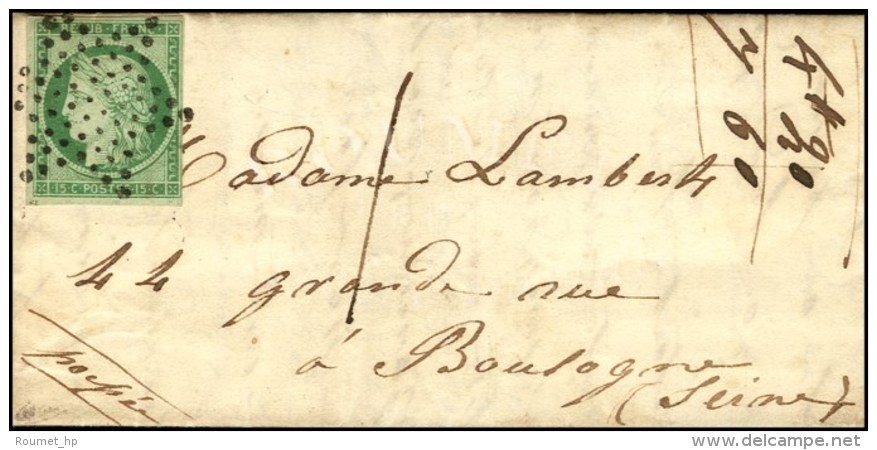 REPUB · FRANC
15·C POSTES 15·C
Madame Lambert
44 grande rue
à Boulogne
(Seine)
Roumet_hp
©delcampe.net